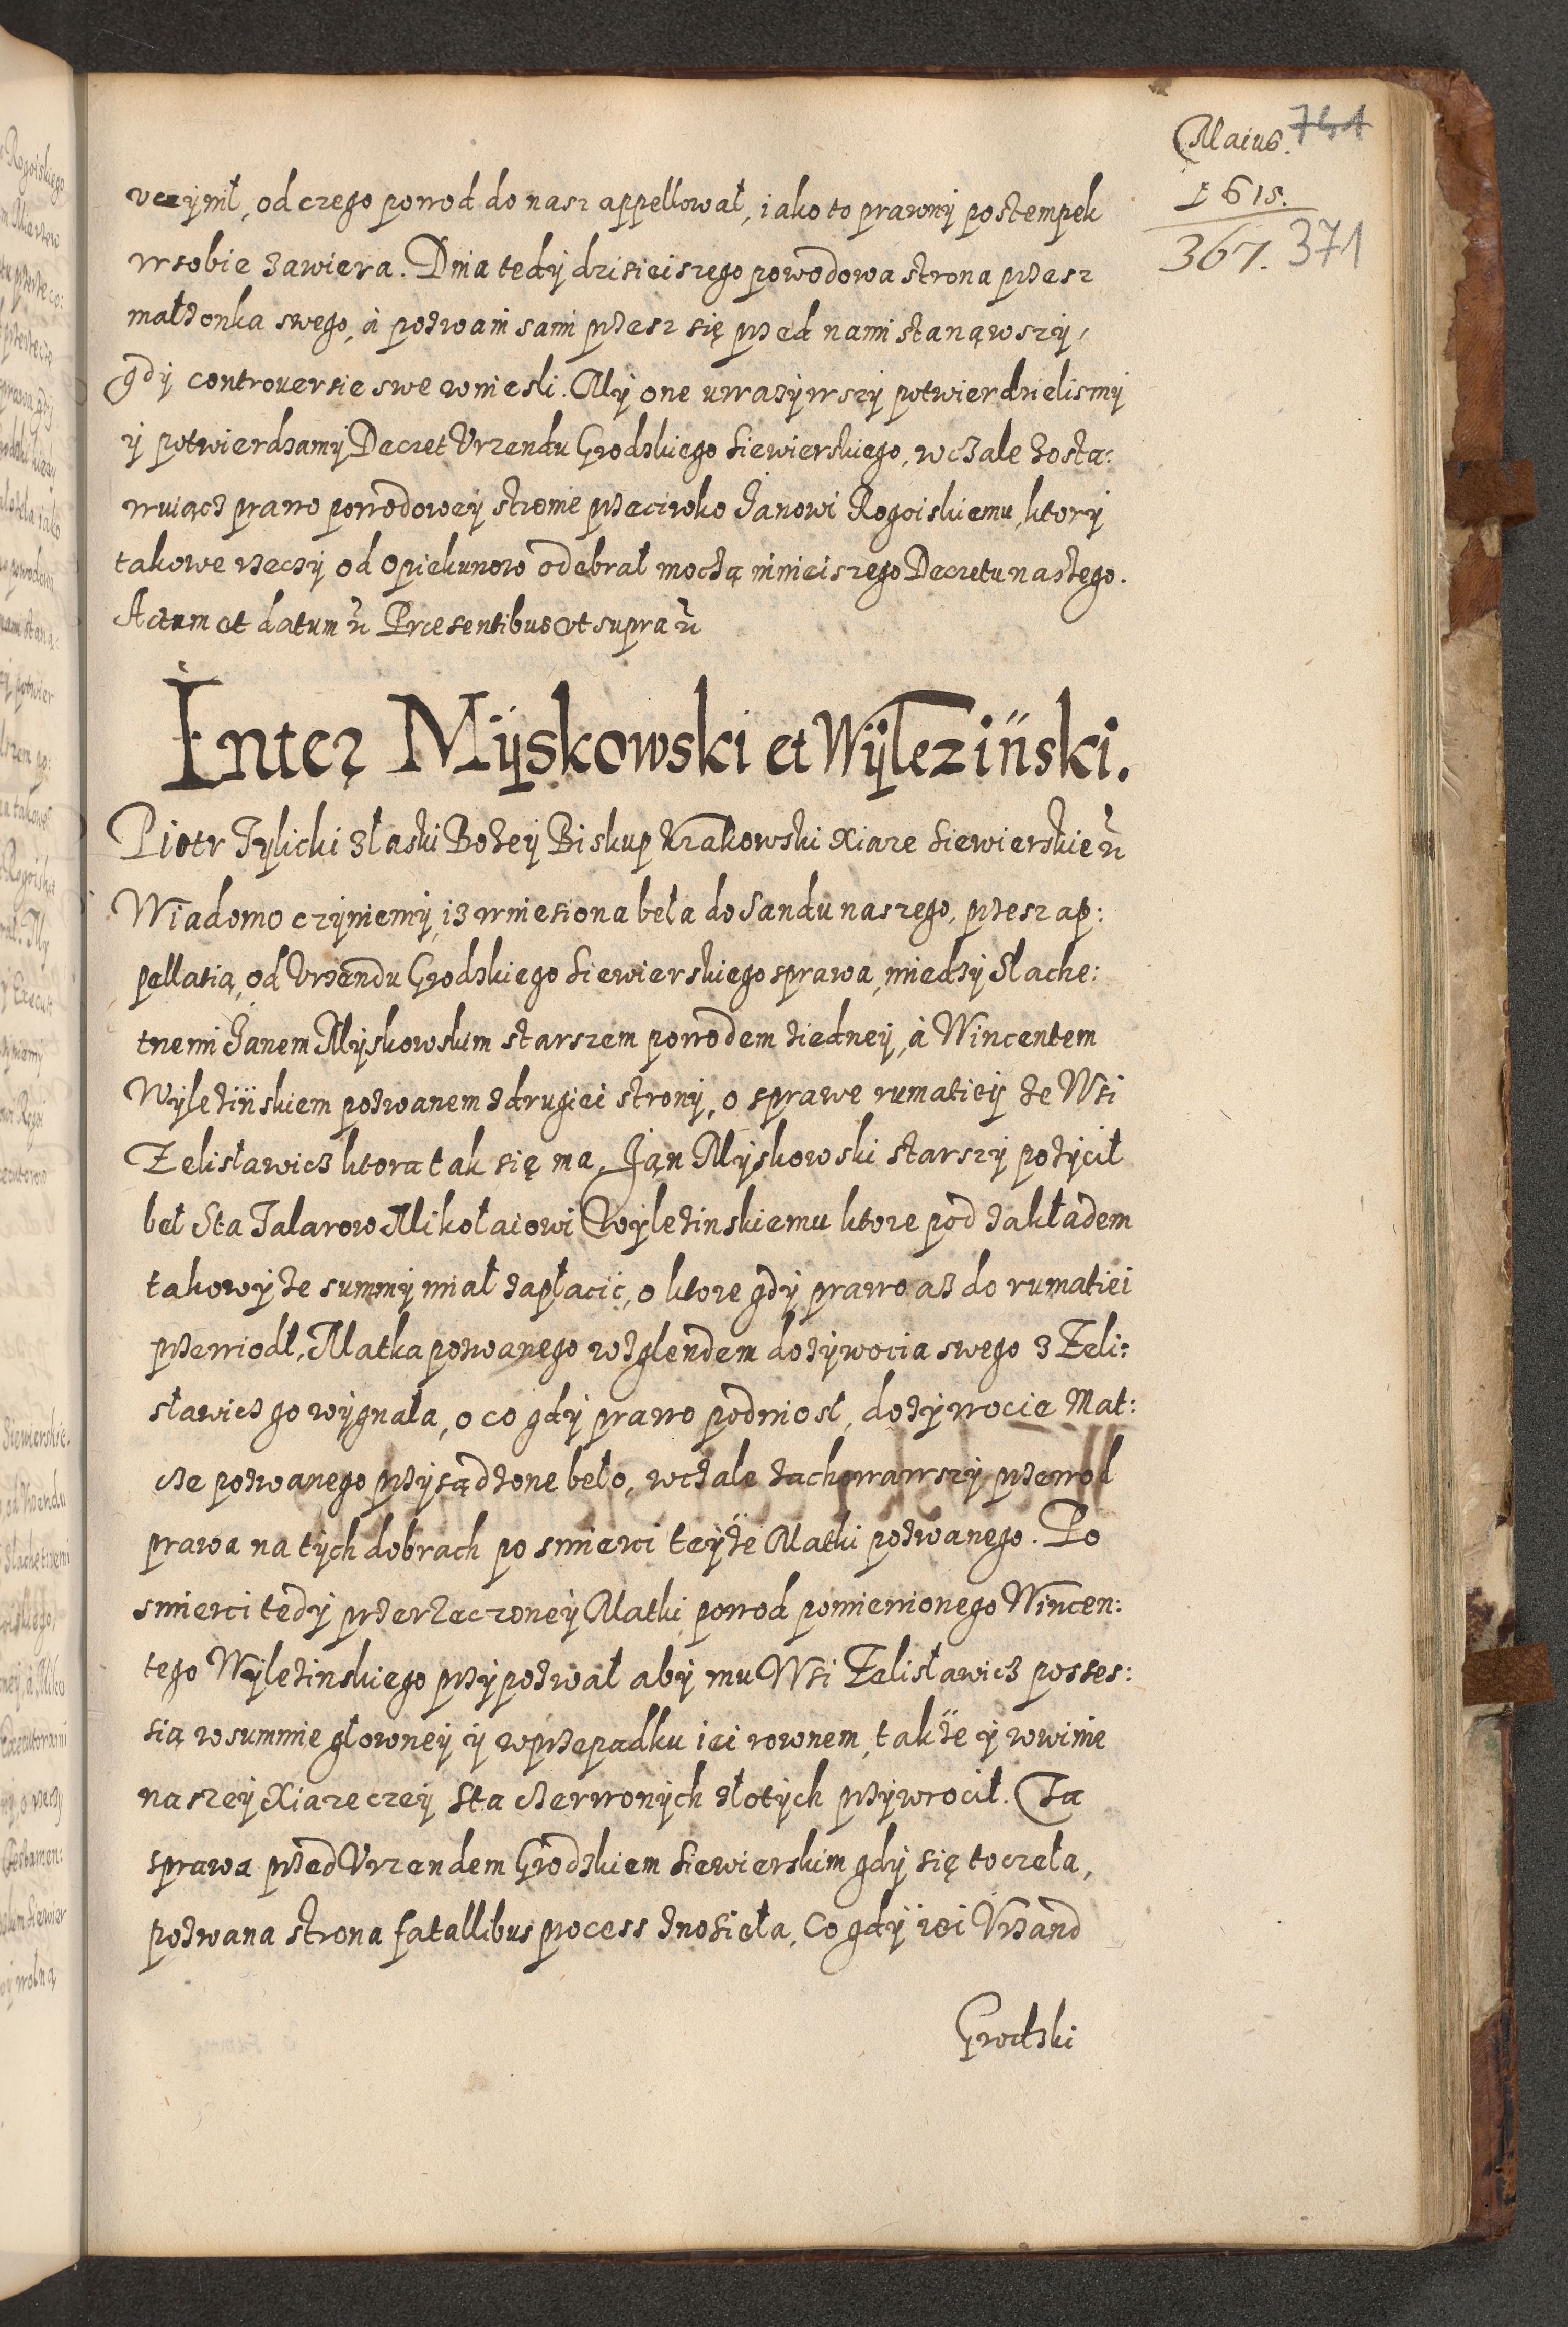 Maius. 741
1615.
367. 371
uczynił, od czego powod do nasz appellował, iako to prawny postempek
w sobie zawiera. Dnia tedy dzisieiszego powodowa strona przesz
małżonka swego, à pozwani sami przesz się przed nami stanąwszy,
gdy controuersie swe wniesli. My one uważywszy potwierdzielismy
y potwierdzamy Decret Vrzendu Grodzkiego Siewierskiego, wcale zosta:
wuiącz prawo powodowey stronie przeciwko Janowi Rogoiskiemu, ktory
takowe rzeczy od Opiekunow odebrał moczą ninieiszego Decretu naszego.
Actum et datum Præsentibus ut supra
Inter Myskowski et Wyleziński.
Piotr Tylicki z łaski Bozey Biskup Krakowski Xiaze Siewierskie
Wiadomo czyniemy, iz wniesiona beła do Sandu naszego, przesz ap:
pellatią, od Vrzendu Grodzkiego Siewierskiego sprawa, miedzy Slache:
tnemi Janem Myskowskim starszem powodem ziedney, à Wincentem
Wyleżińskiem pozwanem zdrugiei strony, o sprawe rumatiey ze Wsi
Zelisławicz ktora tak się ma. Jan Myskowski starszy pożycił
beł Sta Talarow Mikołaiowi Wylezinskiemu ktore pod zakładem
takowyże summy miał zapłacić, o ktore gdy prawo az do rumatiei
przewiodł, Matka pozwanego wzglendem dożywocia swego z Zeli:
sławicz go wygnała, o co gdy prawo podniosł, dożywocie Mat:
cze pozwanego przysądzone beło, wcale zachowawszy przewod
prawa na tych dobrach po smierci teyże Matki pozwanego. Po
smierci tedy przerzeczoney Matki powod pomienionego Wincen:
tego Wylezinskiego przypozwał aby mu Wsi Zelisławicz posses:
sią w summie głowney y w przepadku iei rownem, także y w winie
naszey Xiazeczey Sta czerwonych złotych przywrocił. Ta
sprawa przed Vrzendem Grodzkiem Siewierskim gdy się toczeła,
pozwana strona fatallibus process znosieła, Co gdy iei Vrzand
Grodzki